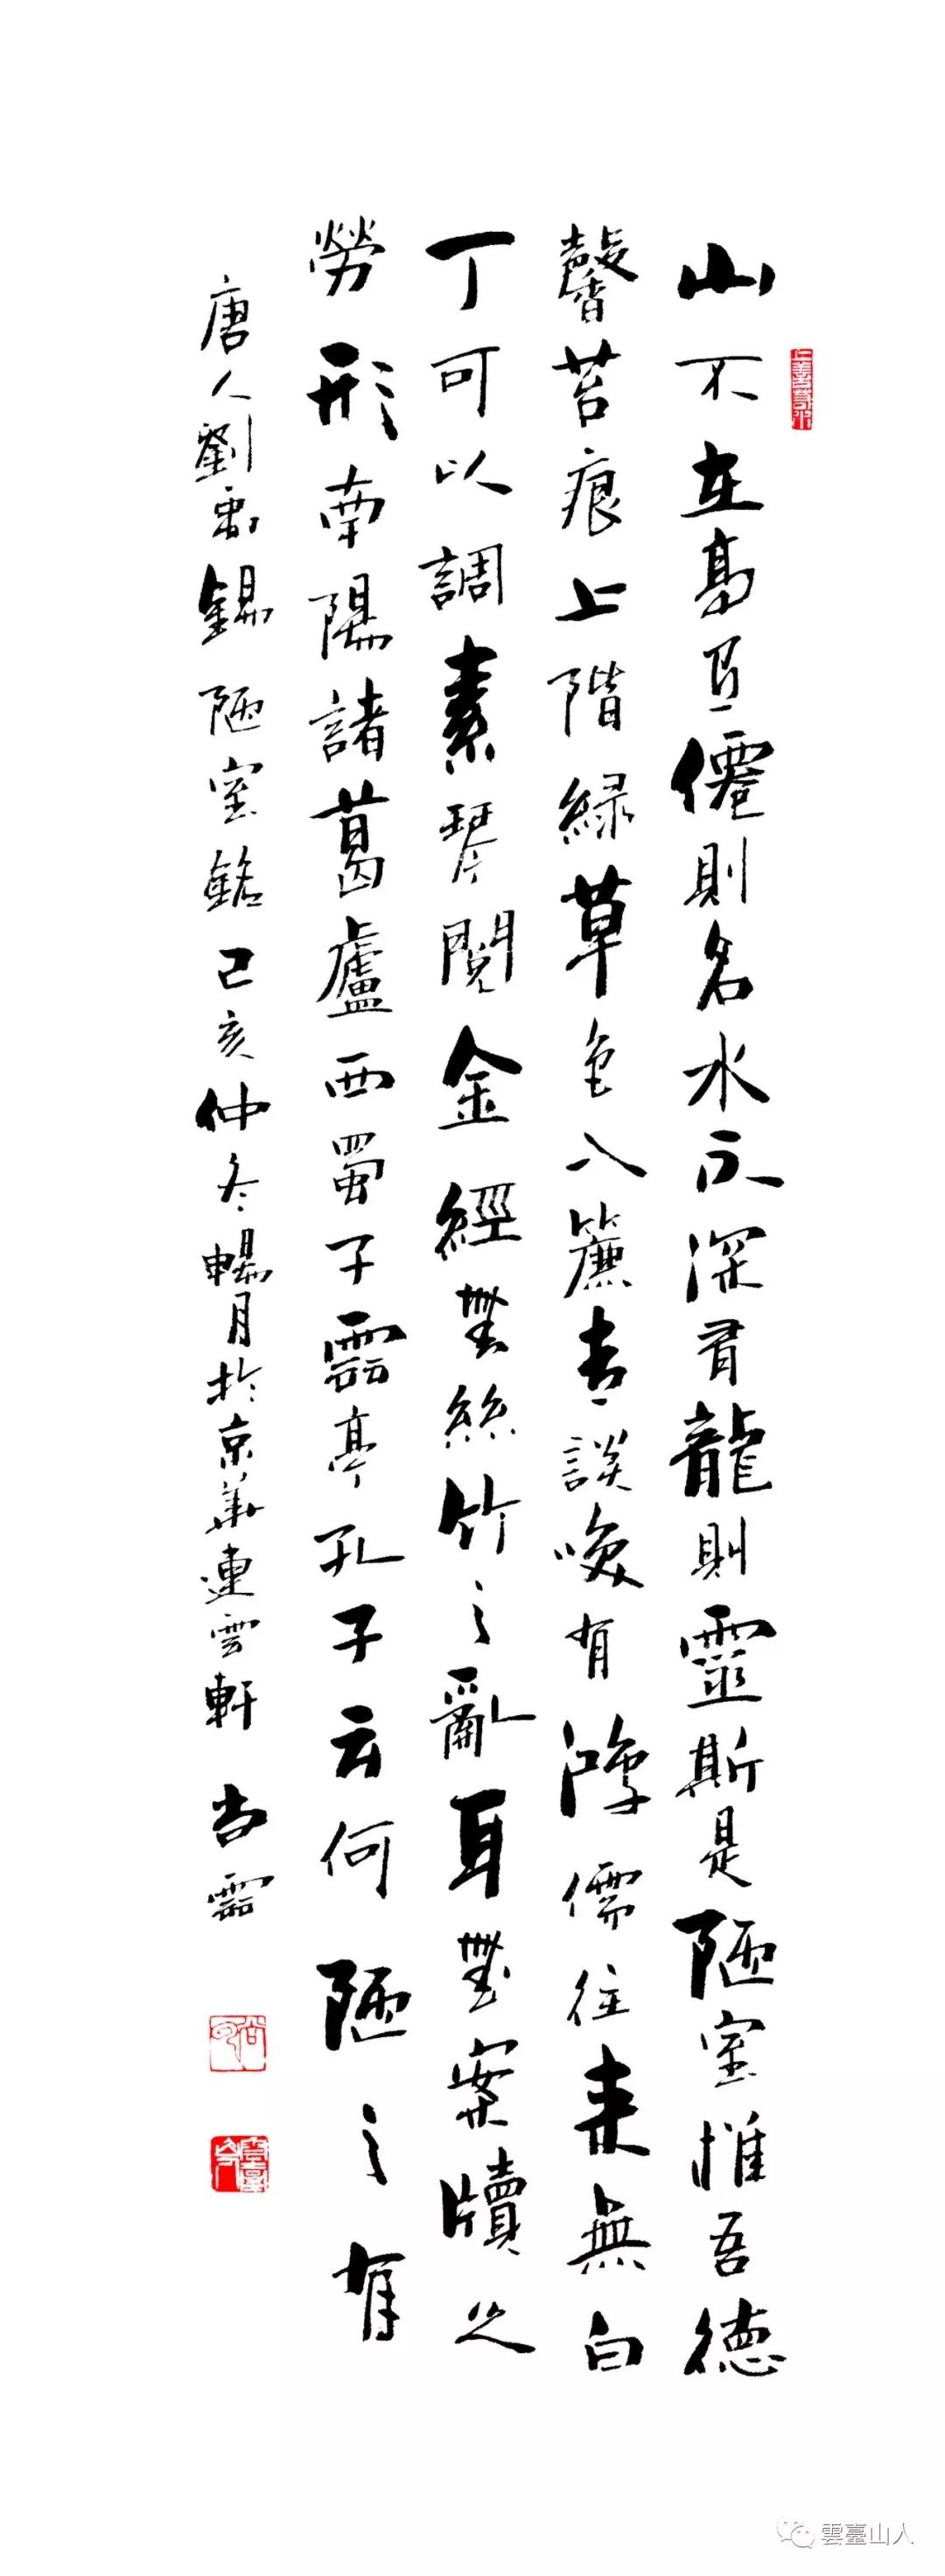 山不在高有僊則名水不深有龍則靈斯是陋室惟吾德
馨苔痕上階緑草色入簾青談咲有鴻儒往来無白
丁可以調素琴閲金經無絲竹之亂耳無案牘之
勞形南陽諸葛廬西蜀子雲亭孔子云何陋之有
唐人劉禹錫陋室銘己亥仲冬暢月於京華連雲軒尚雲
雲臺山人